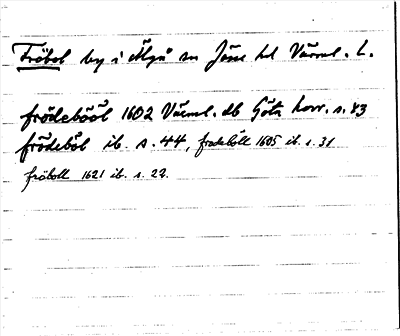 Fröbol by i Älgå sn Jösse hd Värml. L.
frödebööl 1602 Värml. db Göta hovr. s. 83
frödeböl ib. s. 44, frodeböle 1605 ib. s. 31
fröboll 1621 ib. s. 22.